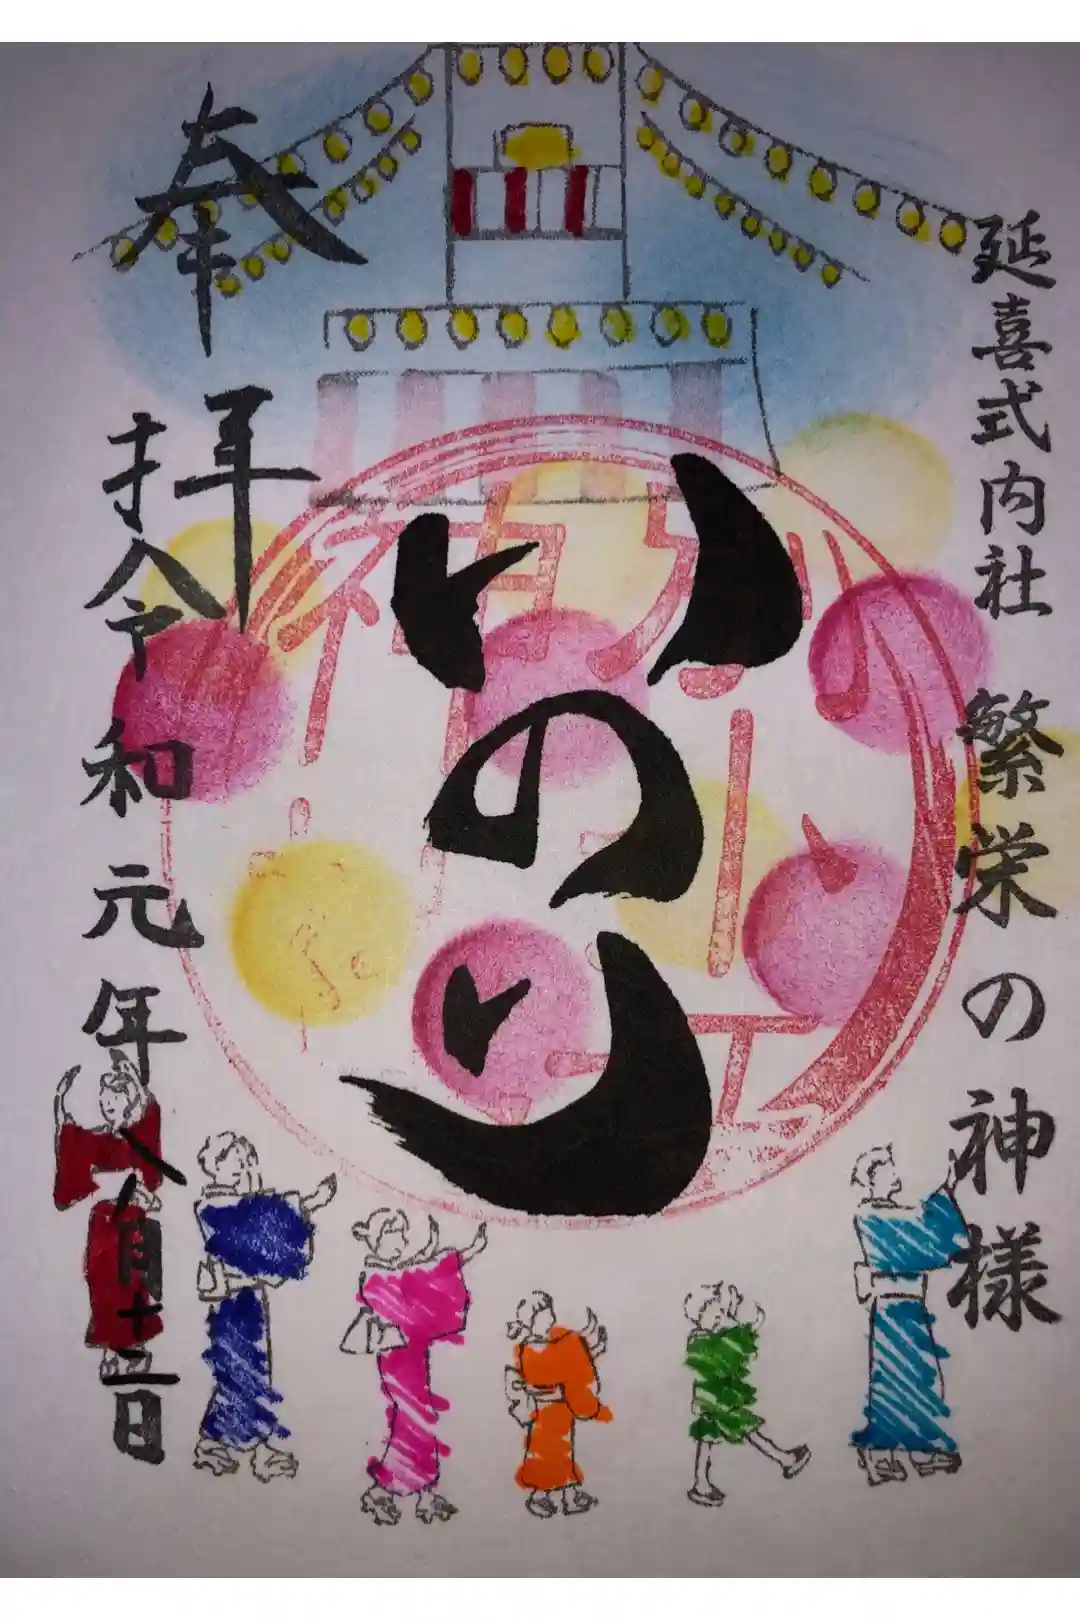 延喜式内社 繁栄の神様
いのり
奉拝
令和元年八月十三日